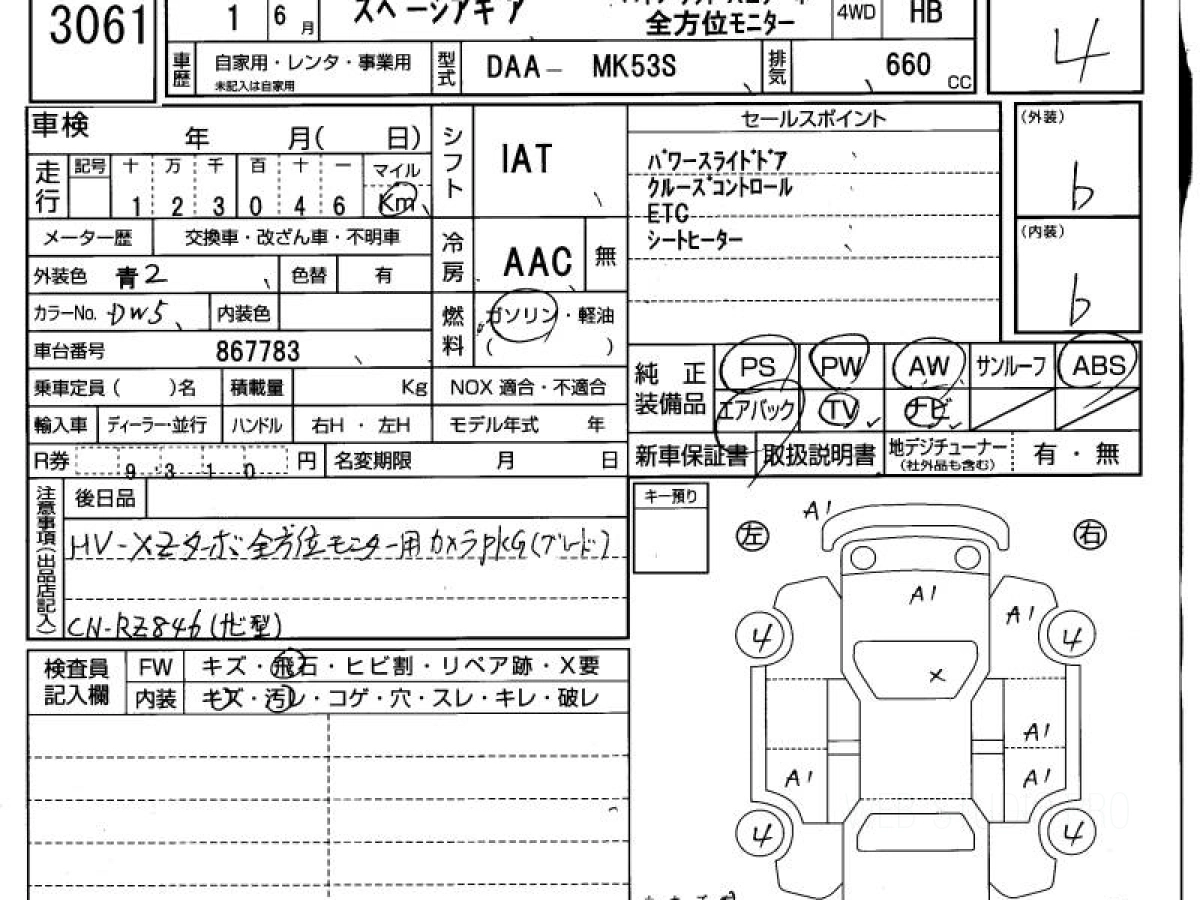 3061 1 6月 スペーシアギア 全方位モニター 4WD HB
車歴 自家用・レンタ・事業用 未記入は自家用 型式 DAA- MK53S 排気 660 CC 4
車検 年 月( 日) シフト IAT セールスポイント (外装) b
走行 記号 十 万 千 百 十 一 マイル パワースライドドア
1 2 3 0 4 6 Km クルーズコントロール
ETC
メーター歴 交換車・改ざん車・不明車 冷房 AAC 無 シートヒーター (内装) b
外装色 青2 色替 有
カラーNo. DW5 内装色 燃料 ガソリン・軽油
( )
車台番号 867783
乗車定員( )名 積載量 Kg NOX 適合・不適合
輸入車 ディーラー・並行 ハンドル 右H・左H モデル年式 年
純正装備品 PS PW AW サンルーフ ABS
エアバック TV ナビ
R券 9310 円 名変期限 月 日
新車保証書 取扱説明書 地デジチューナー (社外品も含む) 有・無
注意事項(出品店記入) 後日品
HV-XZターボ 全方位モニター用カメラpkG(グレード)
CN-RZ846(ナビ型)
検査員記入欄 FW キズ・飛石・ヒビ割・リペア跡・X要
内装 キズ・汚レ・コゲ・穴・スレ・キレ・破レ
キー預り
A1
左 右
A1
A1
4 4
X
A1
A1 A1
4 4